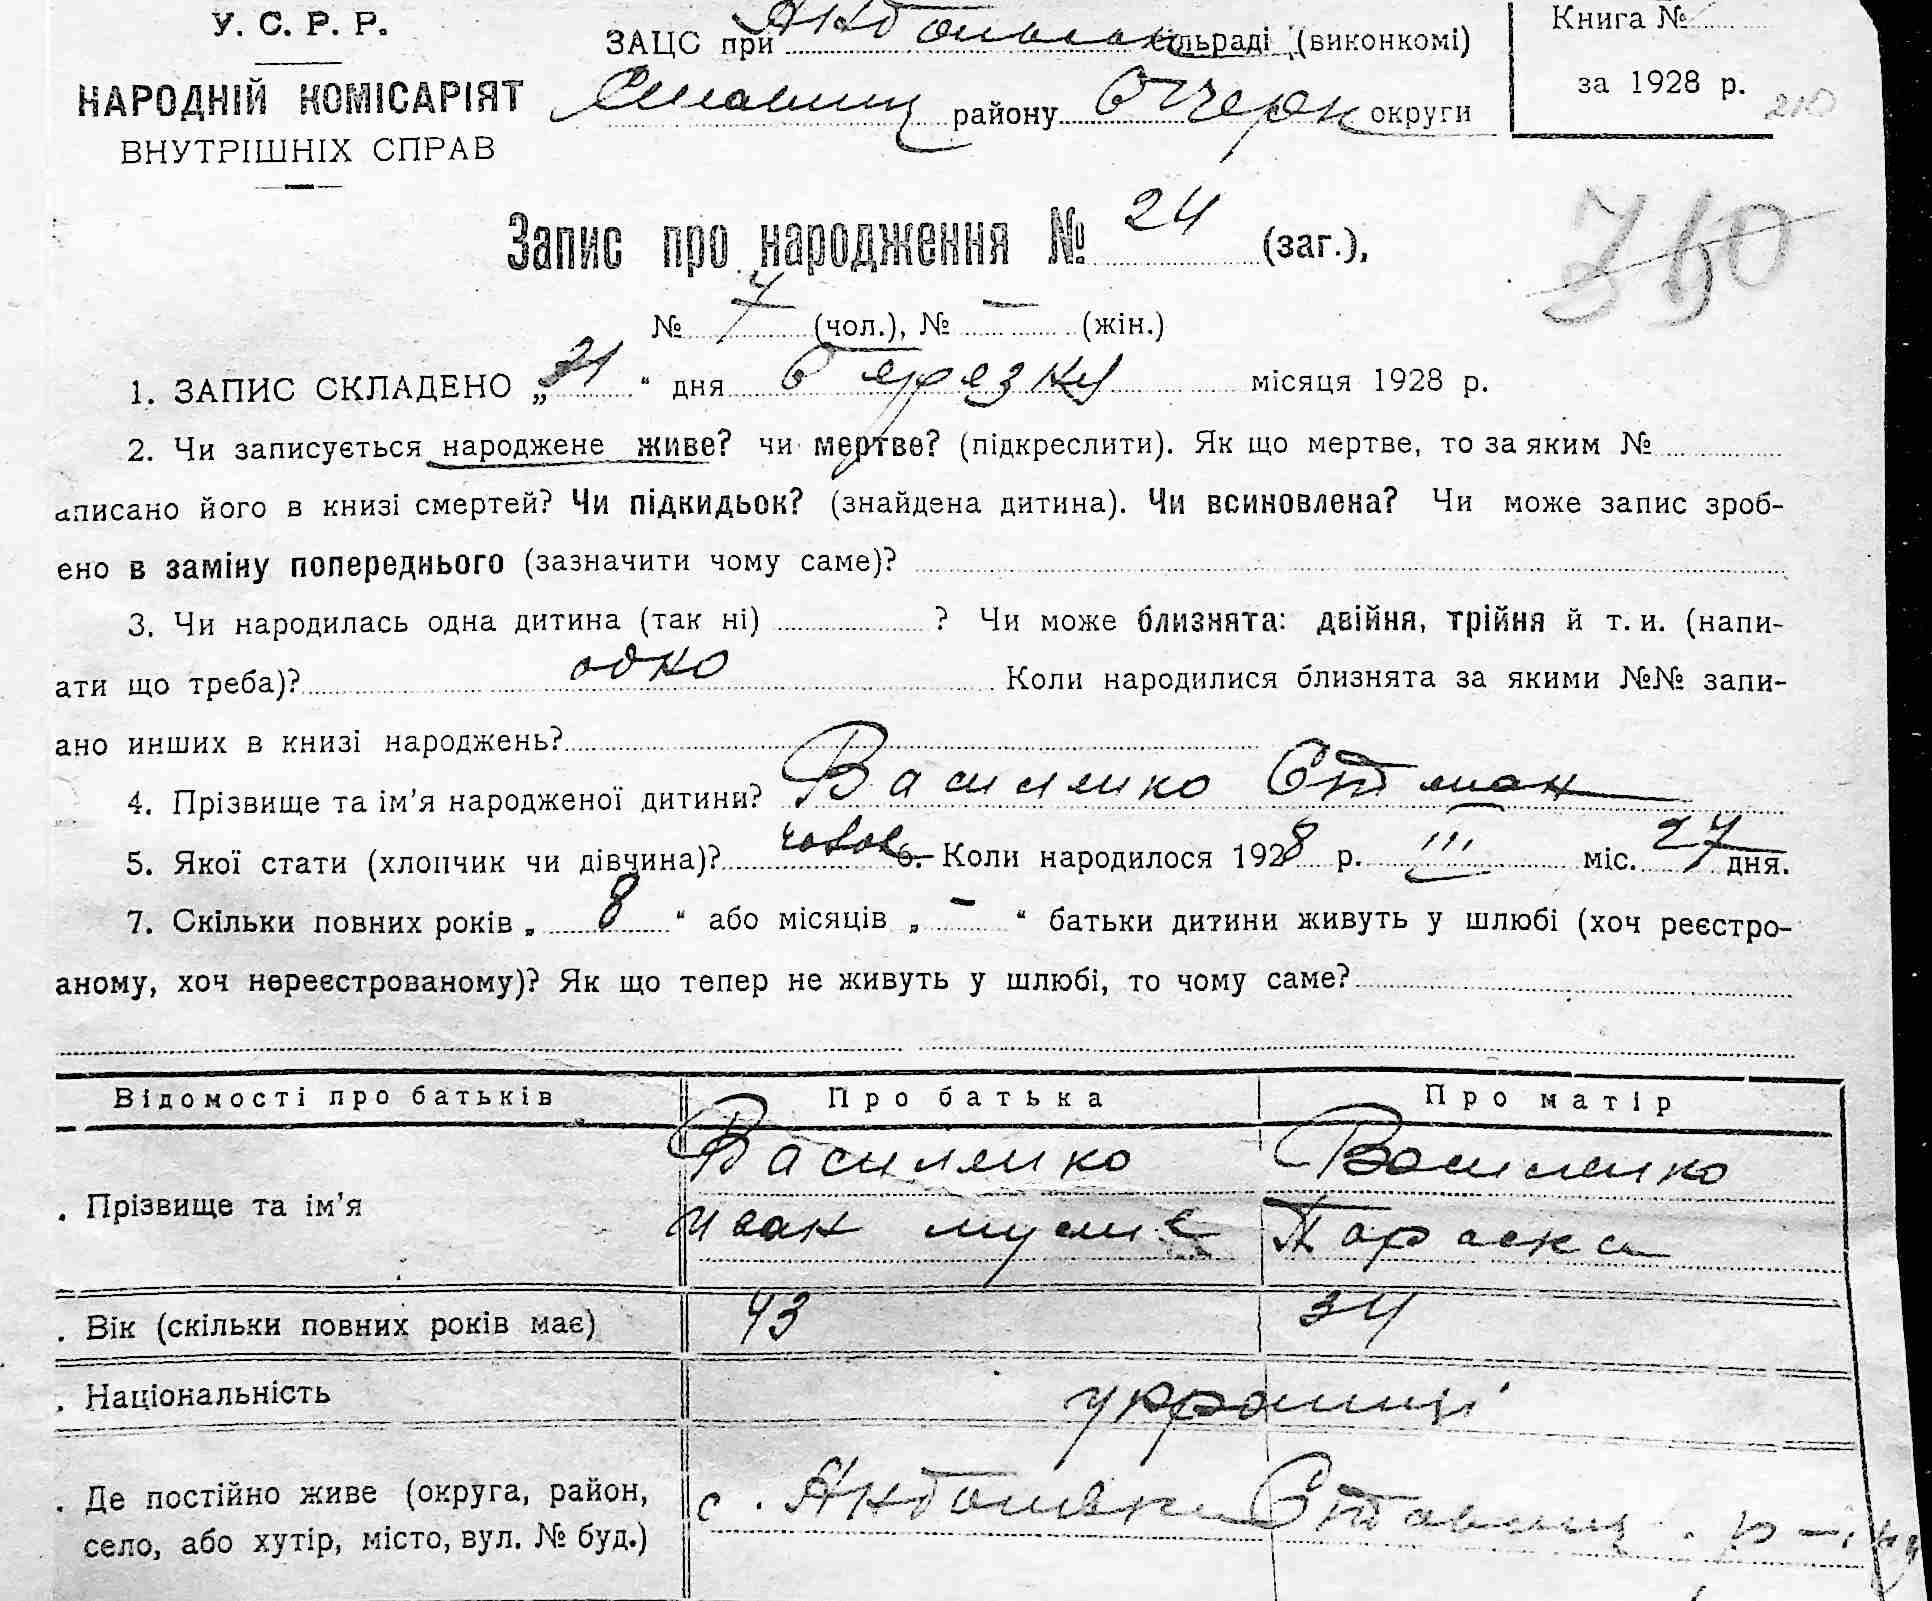 У. С. Р. Р.
НАРОДНІЙ КОМІСАРІЯТ
ВНУТРІШНІХ СПРАВ
ЗАЦС при сільраді (виконкомі)
району округи
Книга №
за 1928 р.
210
Запис про народження № 24 (заг.),
№ 7 (чол.), № — (жін.)
1. ЗАПИС СКЛАДЕНО „31“ дня березня місяця 1928 р.
2. Чи записується народжене живе? чи мертве? (підкреслити). Як що мертве, то за яким №
аписано його в книзі смертей? Чи підкидьок? (знайдена дитина). Чи всиновлена? Чи може запис зроб-
ено в заміну попереднього (зазначити чому саме)?
3. Чи народилась одна дитина (так ні) ? Чи може близнята: двійня, трійня й т. и. (напи-
ати що треба)? одно Коли народилися близнята за якими №№ запи-
ано инших в книзі народжень?
4. Прізвище та ім’я народженої дитини? Василенко
5. Якої стати (хлопчик чи дівчина)? чолов 6. Коли народилося 1928 р. III міс. 27 дня.
7. Скільки повних років „ 8 “ або місяців „ — “ батьки дитини живуть у шлюбі (хоч реєстро-
аному, хоч нереєстрованому)? Як що тепер не живуть у шлюбі, то чому саме?
Відомості про батьків Про батька Про матір
. Прізвище та ім’я Василенко Василенко
Иван Параска
. Вік (скільки повних років має) 43 34
. Національність українці
. Де постійно живе (округа, район,
село, або хутір, місто, вул. № буд.) с. Антонівки Ставищ. р-ну